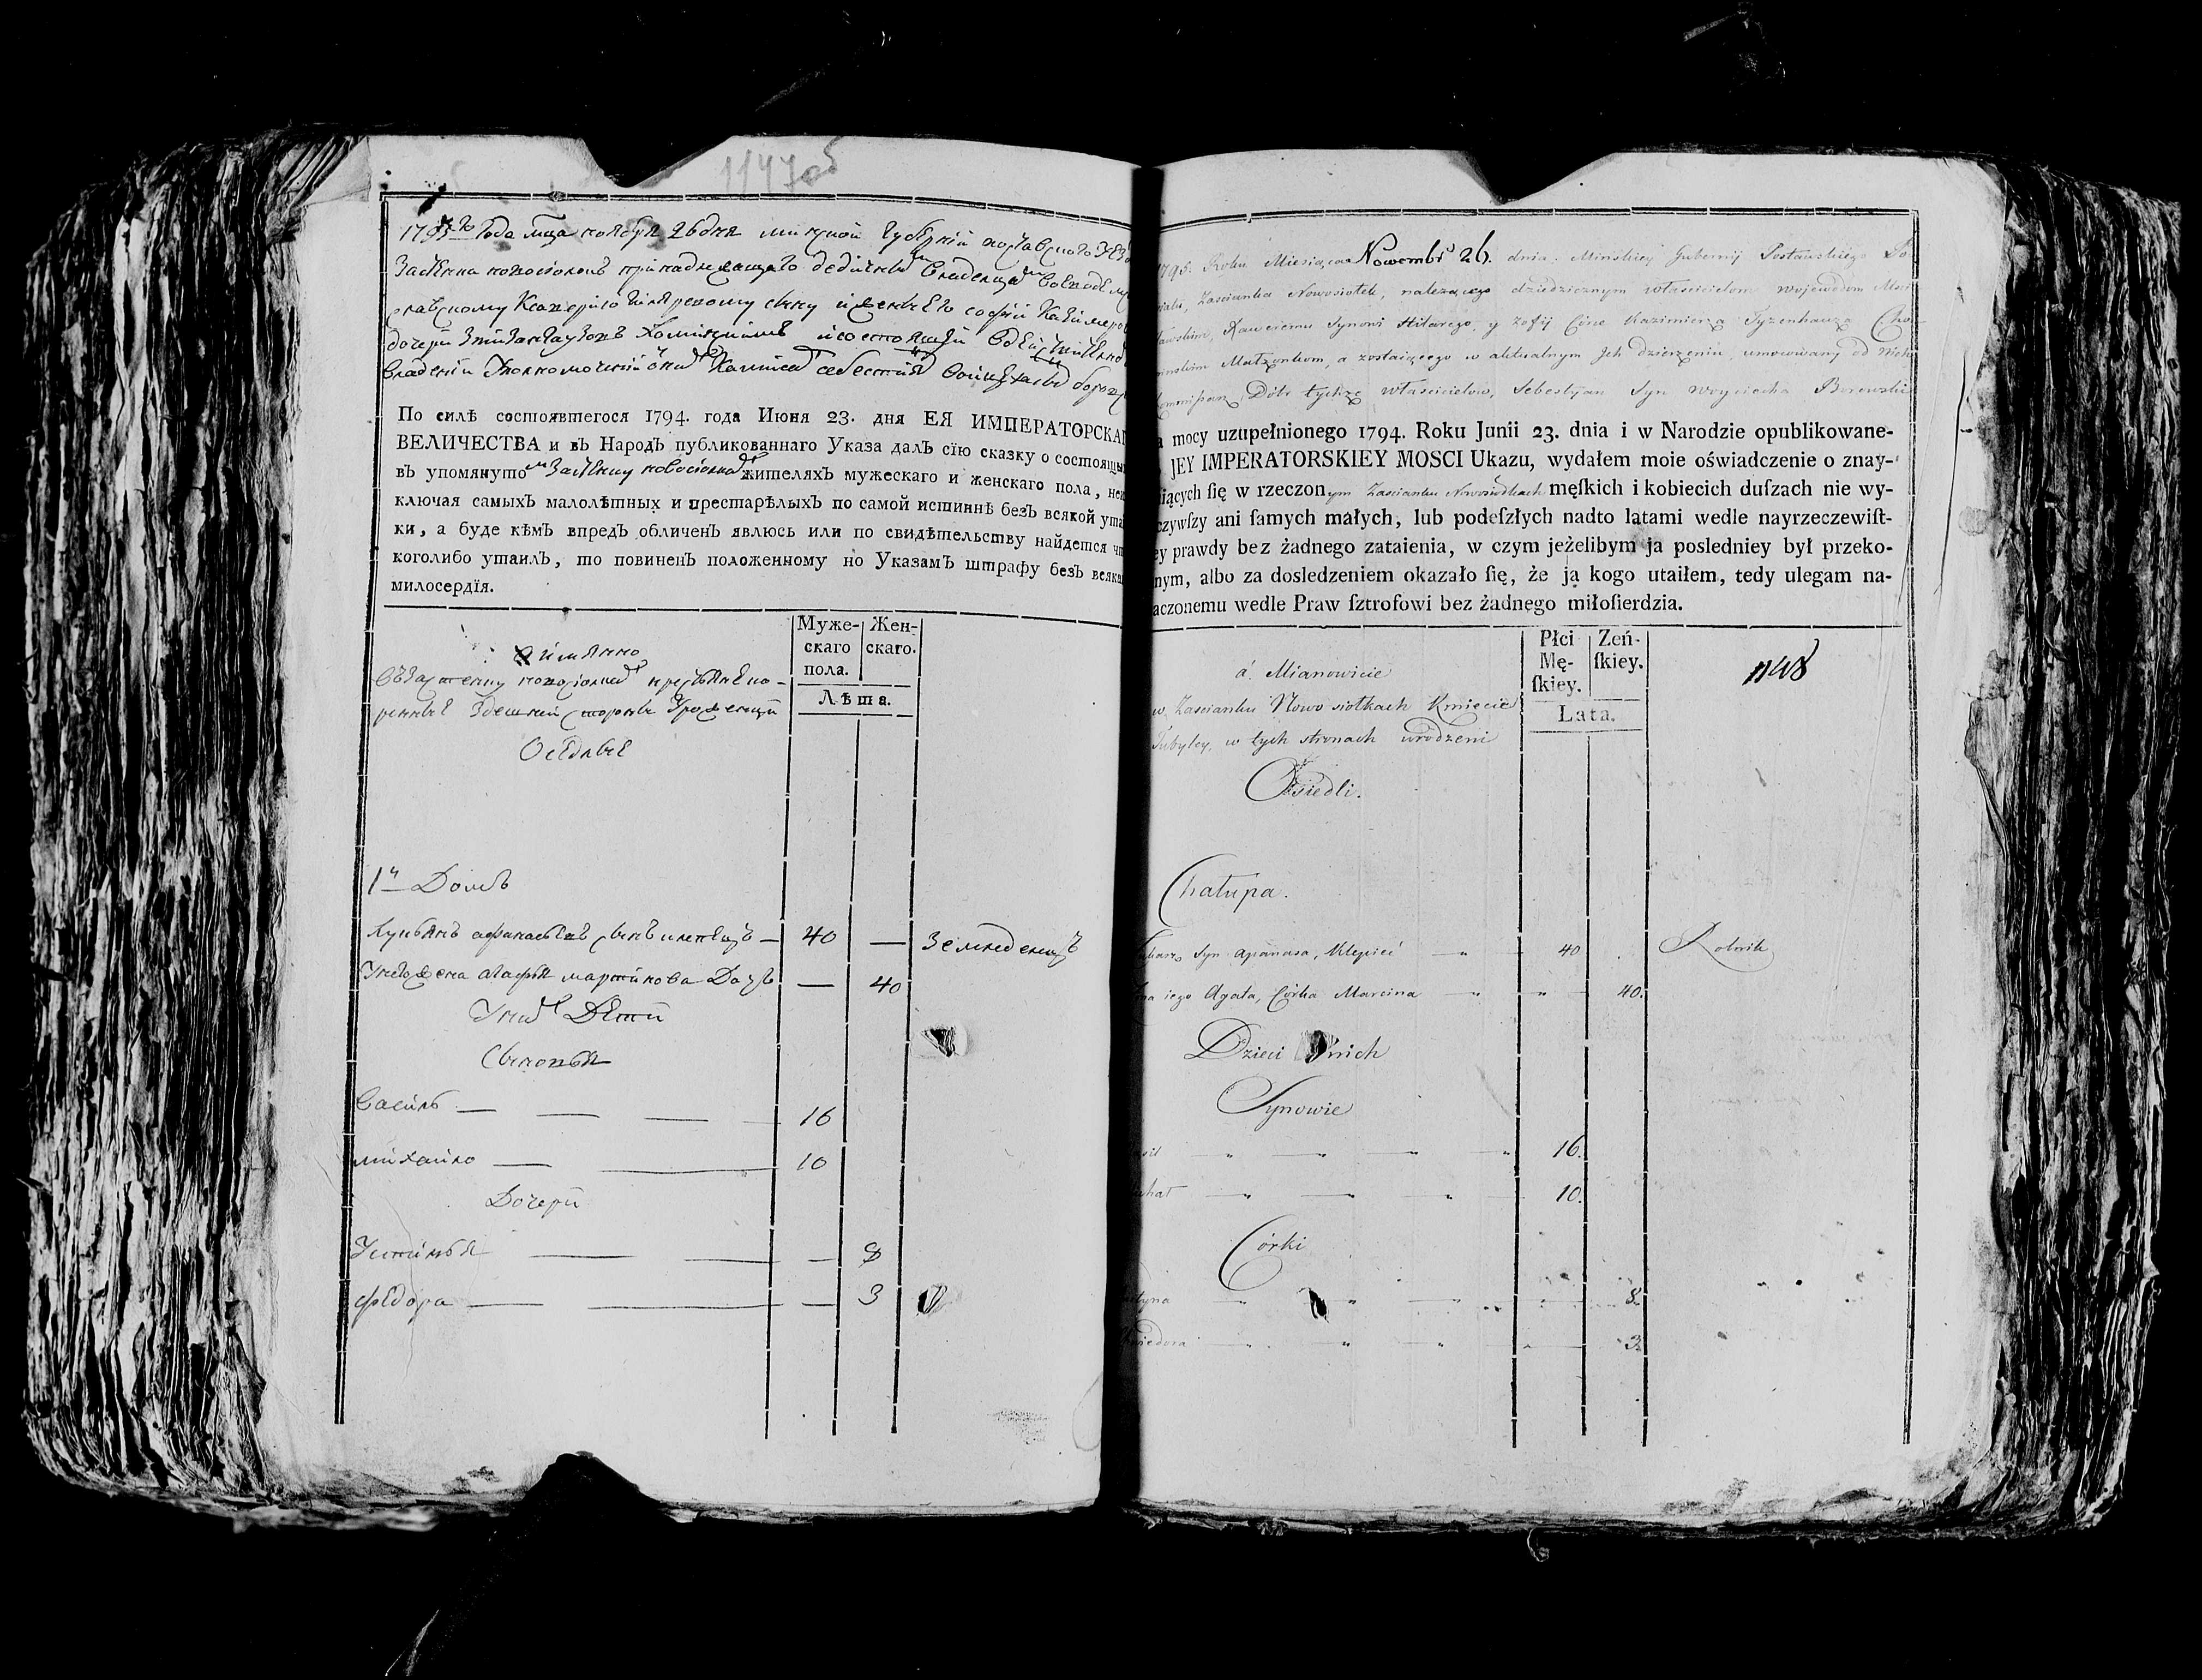 1147 об
1795 го Года мца ноября 26 дня минской губерний поставского
застенка новосіолокъ принадлежащаго
дочери
По силѣ состоявшегося 1794. года Июня 23. дня ЕЯ ИМПЕРАТОРСКА
ВЕЛИЧЕСТВА и въ Народъ публикованнаго Указа далъ сїю сказку о состоящи
въ упомянуто м застенку новосіолка х жителяхъ мужескаго и женскаго пола, неи
ключая самыхъ малолѣтныхъ и престарѣлыхъ по самой истиннѣ безъ всякой ута
ки, а буде кѣмъ впредъ обличенъ явлюсь или по свидѣтельству найдется чт
коголибо утаилъ, то повиненъ положенному по Указамъ штрафу безъ всяка
милосердїя.
Муже- скаго пола.
Жен- скаго.
Лѣта.
имянно
в застенку новосіолка х крестьяне ко-
ренные здешней стороны уроженцы
Оседлые
1 й Домъ
Лукьянъ афанасьевъ сынъ клепецъ — 40 — земледелецъ
У него жена агафья мартинова дочь — 40
У них Дети
Сыновья
Василь — 16
михайло — 10
Дочери
Устинья — 8
федора — 3
1795. Roku Miesiąca Novembr 26. dnia. Minskiey Gubernij Postawskiego Po
wiatu, Zascianka Nowosiołek, należącego dziedzicznym właścicielom wojewodom Mści
sławskim, Xaweremu Synowi Hilarego, y Zofij Córe Kazimierza Tyzenhauza Cho
mińskim Małżonkom, a zostaiącego w aktualnym Jch dzierżeniu, umocowany od Nich
Kommissarz Dóbr tychże właścicielow, Sebestyan Syn Woyciecha Borowski
a mocy uzupełnionego 1794. Roku Junii 23. dnia i w Narodzie opublikowane-
JEY IMPERATORSKIEY MOSCI Ukazu, wydałem moie oświadczenie o znay-
iących ſię w rzeczonym Zascianku Nowosiołkach męſkich i kobiecich duſzach nie wy-
czywſzy ani ſamych małych, lub podeſzłych nadto latami wedle nayrzeczewiſt-
ey prawdy bez żadnego zataienia, w czym jeżelibym ja posledniey był przeko-
nym, albo za dosledzeniem okazało ſię, że ja kogo utaiłem, tedy ulegam na-
aczonemu wedle Praw ſztrofowi bez żadnego miłoſierdzia.
Płci Mę- ſkiey.
Zeń- ſkiey.
Lata.
1148
á Mianowicie
w Zascianku Nowosiołkach Kmiecie
Tubylcy, w tych stronach urodzeni
Osiedli.
Chałupa.
Łukasz Syn Apanasa, Klepieć 40 Rolnik
Zona iego Agata, Córka Marcina 40.
Dzieci z nich
Synowie
sil 16.
chał 10.
Córki
tyna 8.
iedora 3.